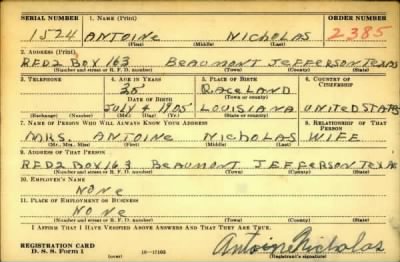 SERIAL NUMBER 1. NAME (Print) ORDER NUMBER
1524 ANTOINE NICHOLAS 2385
(First) (Middle) (Last)
2. ADDRESS (Print)
RFD2 BOX 163 BEAUMONT JEFFERSON TEXAS
(Number and street or R. F. D. number) (Town) (County) (State)
3. TELEPHONE 4. AGE IN YEARS 5. PLACE OF BIRTH 6. COUNTRY OF CITIZENSHIP
35 RACELAND
DATE OF BIRTH (Town or county)
JULY 4 1905 LOUISIANA UNITED STATES
(Exchange) (Number) (Mo.) (Day) (Yr.) (State or country)
7. NAME OF PERSON WHO WILL ALWAYS KNOW YOUR ADDRESS 8. RELATIONSHIP OF THAT PERSON
MRS. ANTOINE NICHOLAS WIFE
(Mr., Mrs., Miss) (First) (Middle) (Last)
9. ADDRESS OF THAT PERSON
RFD2 BOX 163 BEAUMONT JEFFERSON TEXAS
(Number and street or R. F. D. number) (Town) (County) (State)
10. EMPLOYER'S NAME
NONE
11. PLACE OF EMPLOYMENT OR BUSINESS
NONE
(Number and street or R. F. D. number) (Town) (County) (State)
I AFFIRM THAT I HAVE VERIFIED ABOVE ANSWERS AND THAT THEY ARE TRUE.
REGISTRATION CARD
D. S. S. Form 1 (over) 16—17105 Antoine Nicholas
(Registrant's signature)